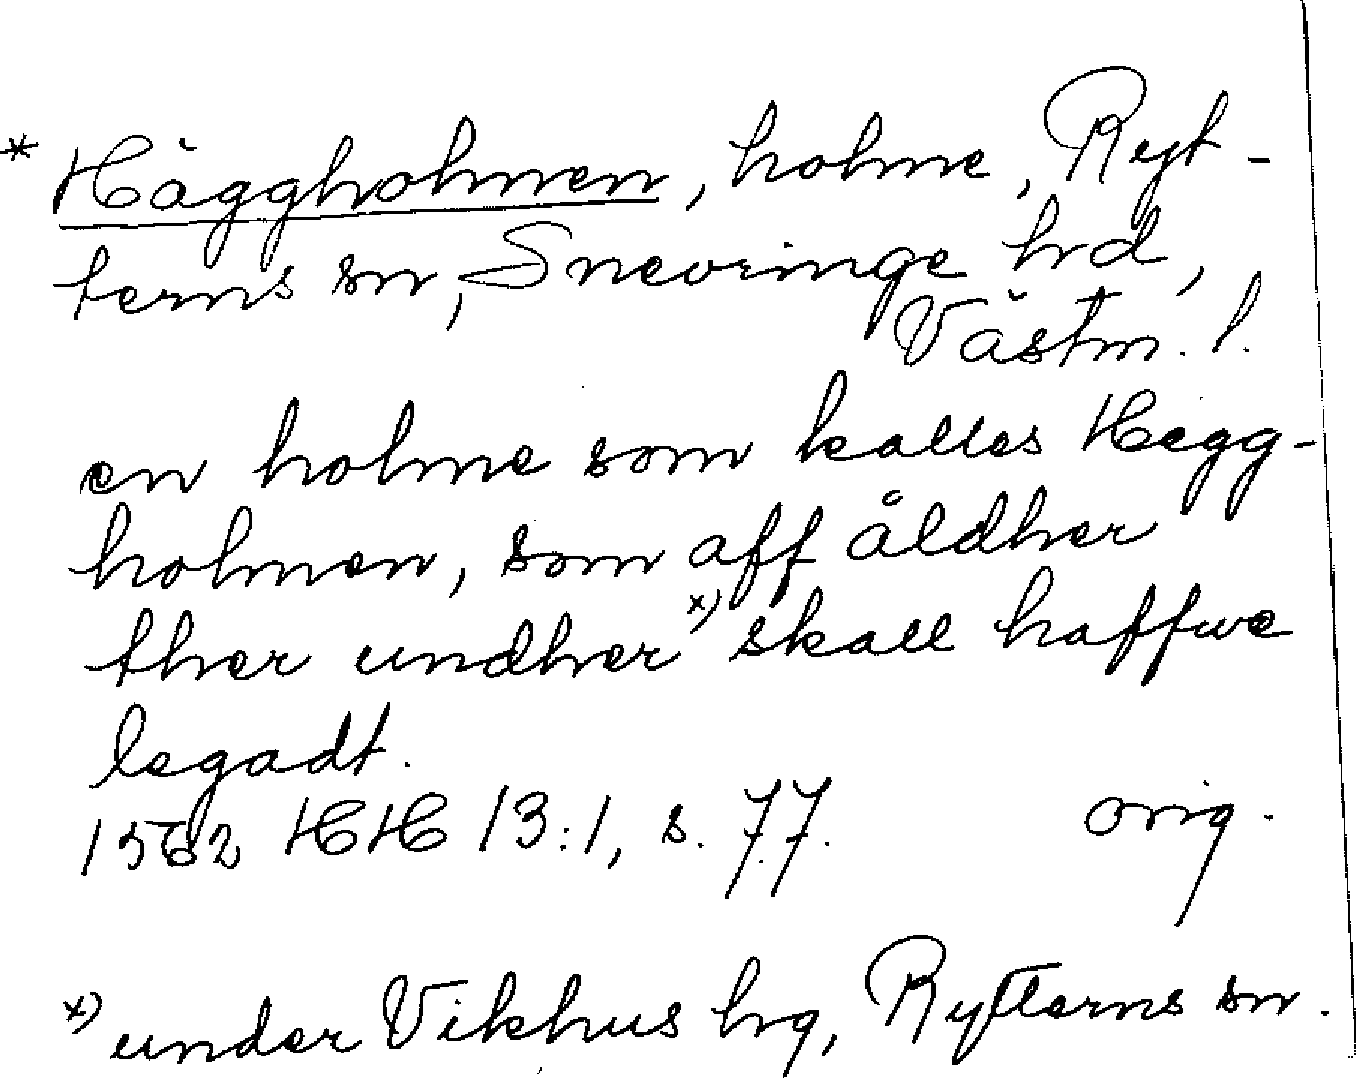 * Häggholmen, holme, Ryt-
terns sn, Snevringe hd,
Västm. l.
en holme som kalles Hegg-
holmen, som aff åldher
ther undher x) skall haffwe
legadt.
1562 HH 13:1, s. 77. orig.
x) under Vikhus hg, Rytterns sn.